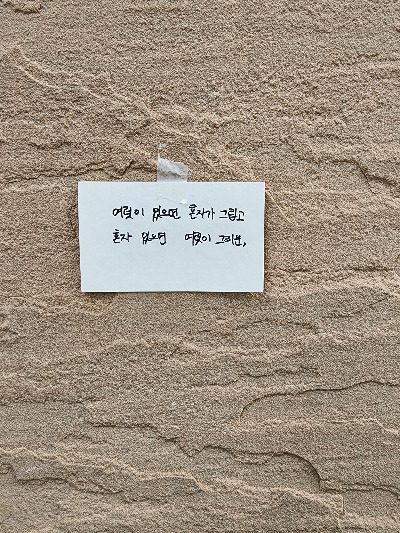 여럿이 있으면 혼자가 그립고
혼자 있으면 여럿이 그리운,